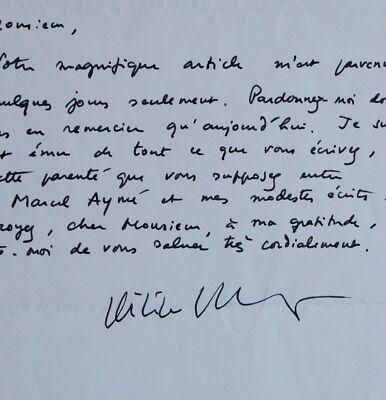 onsieur,
Votre magnifique article m'est parvenu
quelques jours seulement. Pardonnez-moi do
us en remercier qu'aujourd'hui. Je su
t ému de tout ce que vous écrivez,
ette parenté que vous supposez entre
Marcel Aymé et mes modestes écrits.
royez, cher Monsieur, à ma gratitude,
s-moi de vous saluer très cordialement.